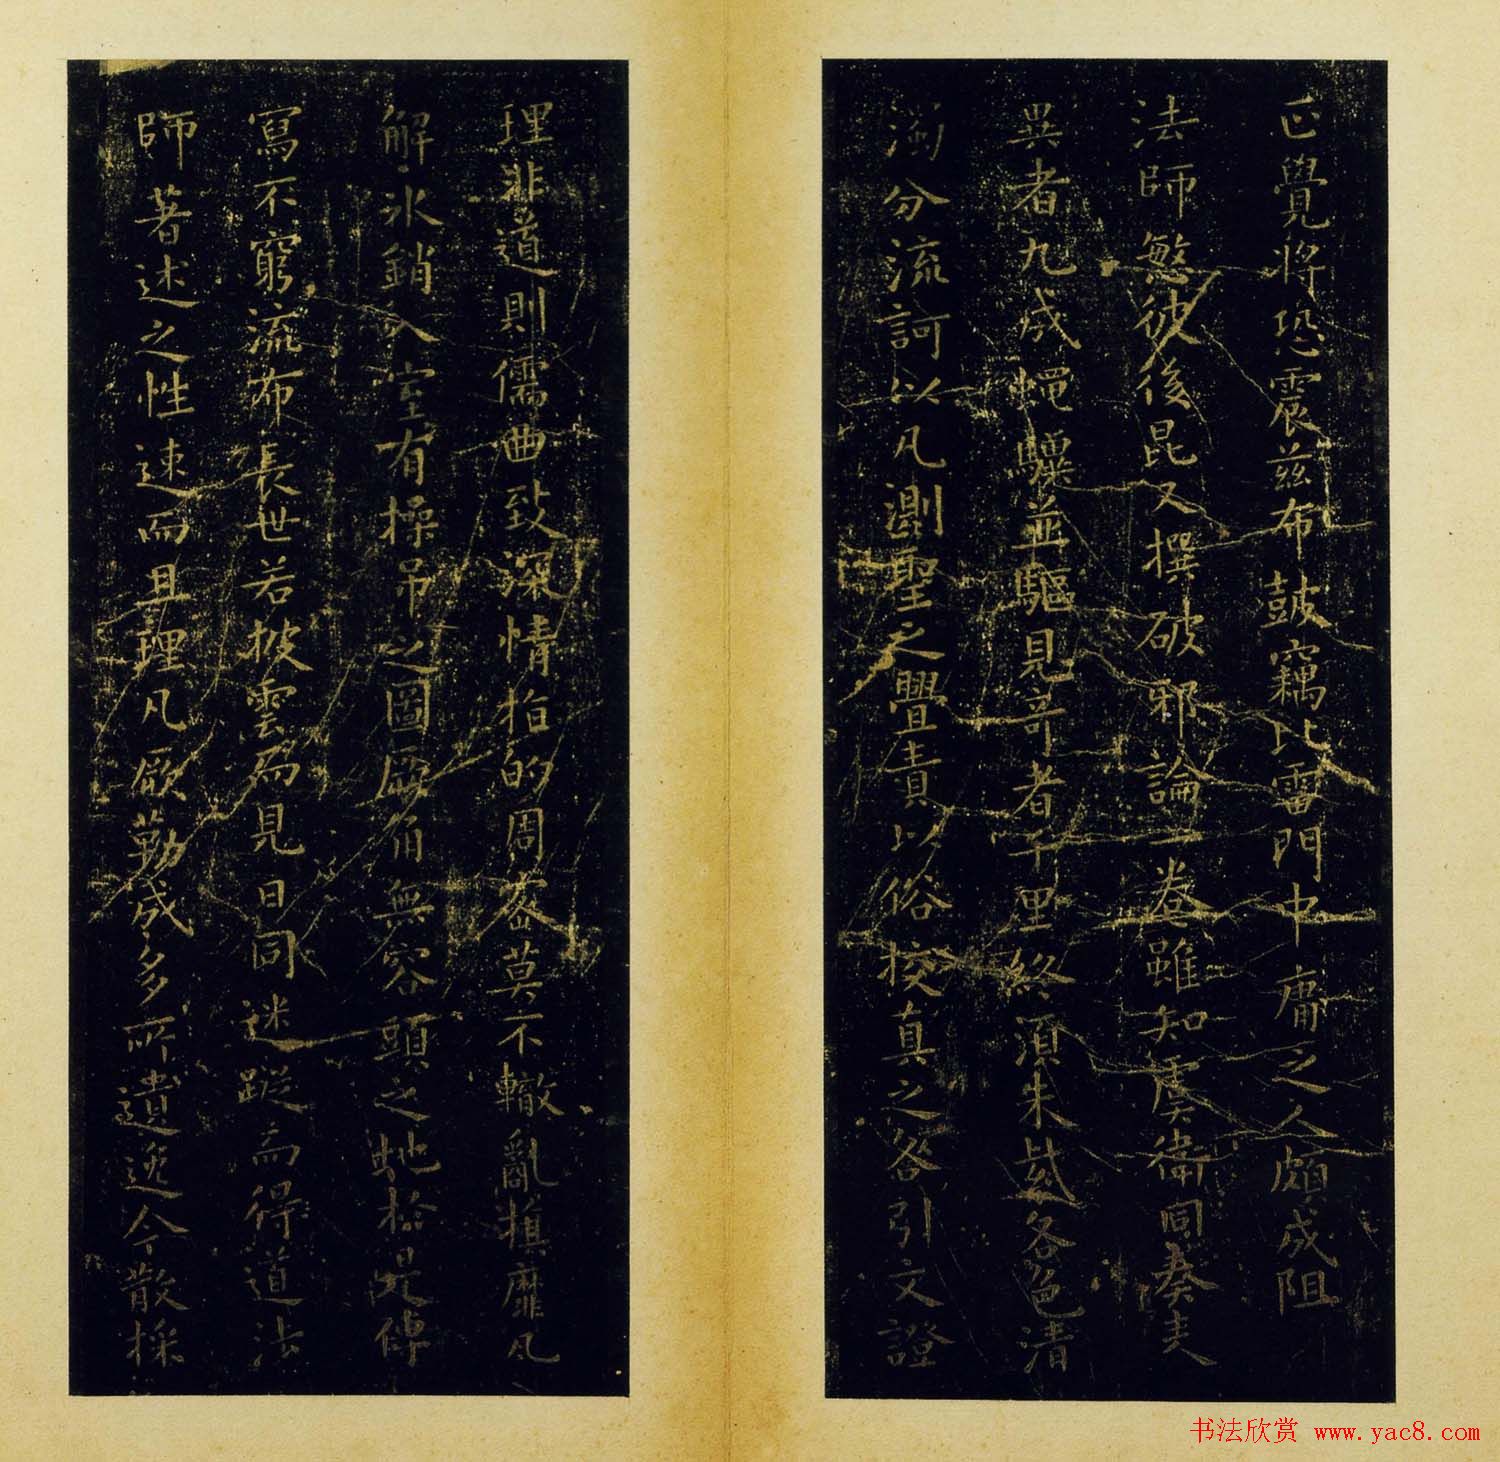 正覺將恐震茲布鼓竊比雷門中庸之人頗成阻
法師慜彼後昆又撰破邪論一卷雖知虞衛同奏夫
異者九成蠅驥並驅見奇者千里終須朱紫各色清
濁分流訶以凡測聖之舋責以俗挍真之咎引文證
理非道則儒曲致深情指的周密莫不轍亂旗靡瓦
解冰銷入室有操吊之圖厝有無容頭之地於是傳
寫不窮流布長世若披雲而見日同迷蹤而得道法
師著述之性速而且理凡厥勒成多所遺逸今散採
书法欣赏 www.yac8.com